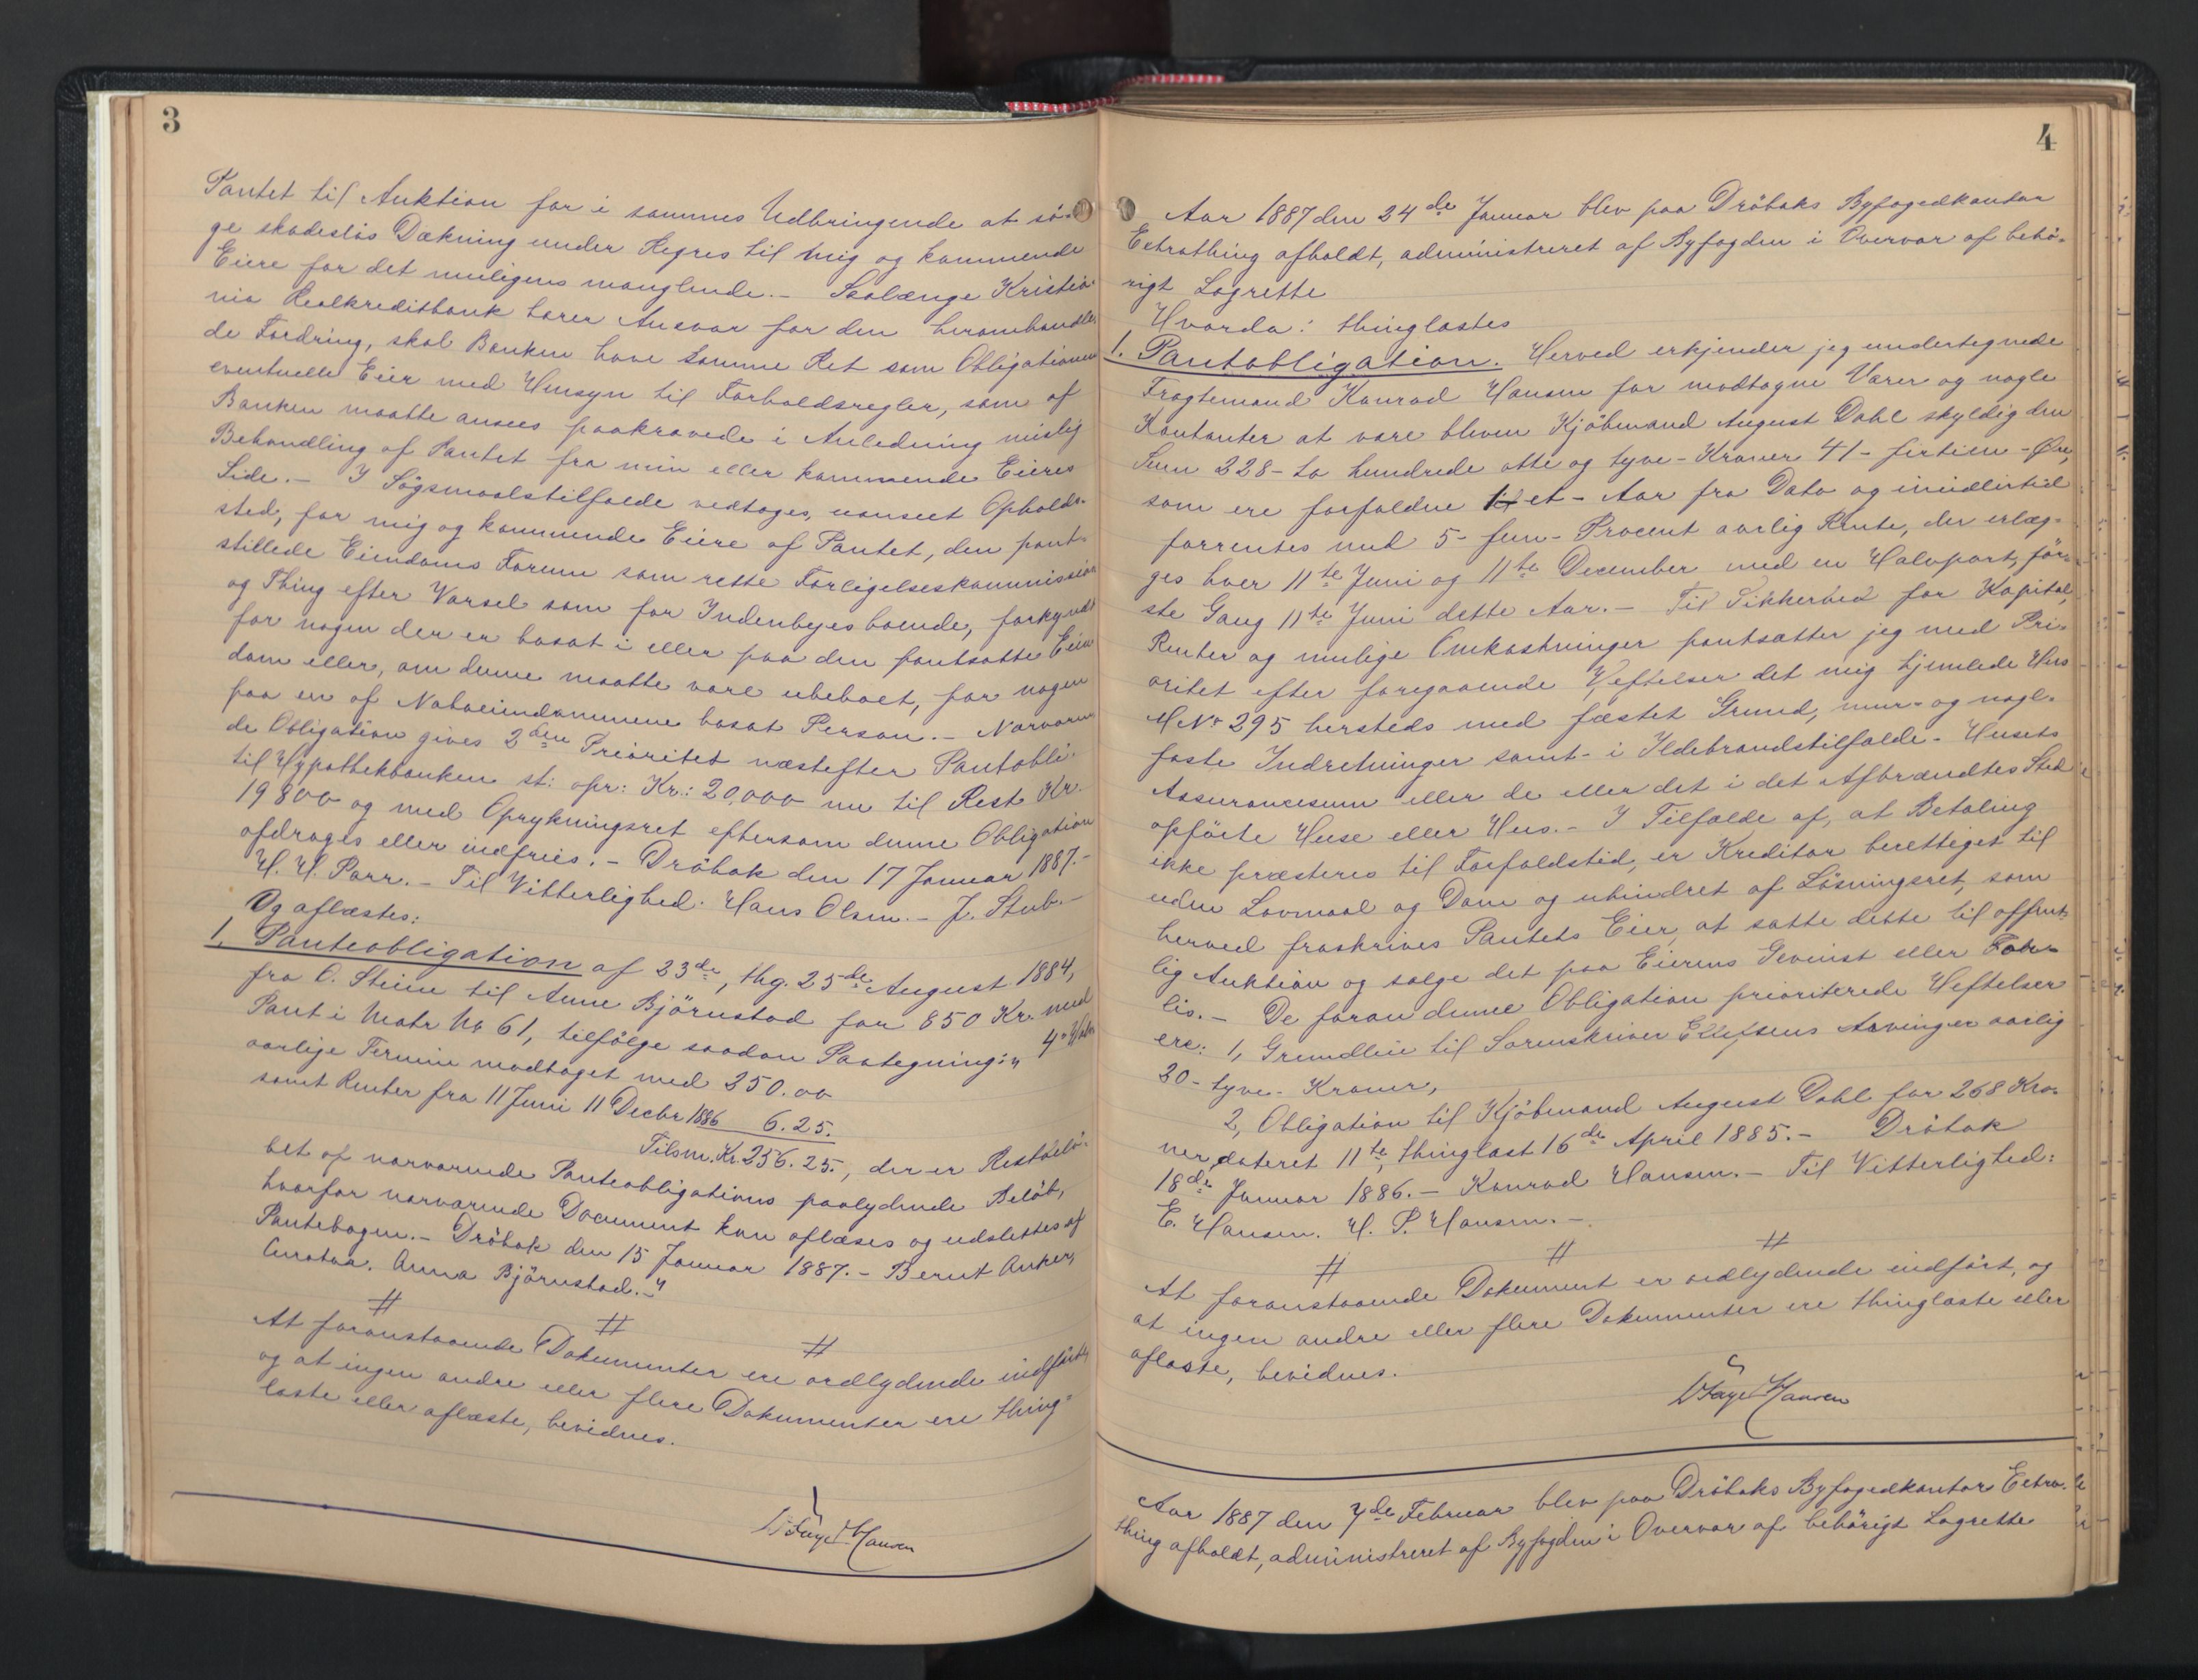 3
Pantet til Auktion for i sammes Udbringende at sö-
ge skadeslös Dækning under Regres til mig og kommende
Eiere for det muligens manglende. - Saalænge Kristia-
nia Realkreditbank bærer Ansvar for den heromhandle-
de Fordring, skal Banken have samme Ret som Obligationens
eventuelle Eier med Hensyn til Forholdsregler, som af
Banken maatte ansees paakrævede i Anledning mislig
Behandling af Pantet fra min eller kommende Eieres
Side. - I Sögsmaalstilfælde vedtages, uanseet Opholds-
sted, for mig og kommende Eiere af Pantet, den pant-
stillede Eiendoms Forum som rette Forligelseskommission
og Thing efter Varsel som for Indenbyes boende, forkyndt
for nogen der er bosat i eller paa den pantsatte Eien-
dom eller, om denne maatte være ubeboet, for nogen
paa en af Naboeiendommene bosat Person. - Nærværen-
de Obligation gives 2den Prioritet næstefter Pantobli-
til Hypothekbanken st: opr: Kr.: 20,000 nu til Rest Kr.
19800 og med Oprykningsret eftersom denne Obligation
afdrages eller indfries. - Dröbak den 17 Januar 1887. -
H. H. Parr. - Til Vitterlighed. Hans Olsen. - J. Stub. -
Og aflæstes:
1. Panteobligation af 23de, thg. 25de August 1884,
fra O. Steen til Anne Björnstad for 850 Kr. med
Pant i Matr No 61, tilfölge saadan Paategning: „ 4de Halv
aarlige Termin modtaget med 250.00
samt Renter fra 11 Juni 11 Decbr 1886 6.25.
Tilsm. Kr. 256.25., der er Restbelö-
bet af nærværende Panteobligations paalydende Belöb,
hvorfor nærværende Document kan aflæses og udslettes af
Pantebogen. - Dröbak den 15 Januar 1887. - Bernt Anker,
Curator. Anna Björnstad. - "
# # #
At foranstaaende Dokumenter ere ordlydende indfört,
og at ingen andre eller flere Dokumenter ere thing-
læste eller aflæste, bevidnes.
Faye Hansen
4
Aar 1887 den 24de Januar blev paa Dröbaks Byfogedkontor
Extrathing afholdt, administreret af Byfogden i Overvær af behö-
rigt Lagrette
Hvorda: thinglæstes
1. Pantobligation. Herved erkjender jeg undertegnede
Fragtemand Konrad Hansen for modtagne Varer og nogle
Kontanter at være bleven Kjöbmand August Dahl skyldig den
Sum 228 - to hundrede otte og tyve - Kroner 41 - firtien - Öre,
som ere forfaldne et - Aar fra Dato og imidlertid
forrentes med 5 - fem - Procent aarlig Rente, der erlæg-
ges hver 11te Juni og 11te December med en Halvpart, för-
ste Gang 11te Juni dette Aar. - Til Sikkerhed for Kapital,
Renter og mulige Omkostninger pantsætter jeg med Pri-
oritet efter foregaaende Heftelser det mig hjemlede Hus
MNo 295 hersteds med fæstet Grund, mur- og nagl-
faste Indretninger samt - i Ildebrandstilfælde - Husets
Assurancesum eller de eller det i det Afbrændtes Sted
opförte Huse eller Hus. - I Tilfælde af, at Betaling
ikke præsteres til Forfaldstid, er Kreditor berettiget til
uden Lovmaal og Dom og uhindret af Lösningsret, som
herved fraskrives Pantets Eier, at sætte dette til offent-
lig Auktion og sælge det paa Eierens Gevinst eller For-
lis. - De foran denne Obligation prioriterede Heftelser
ere: 1, Grundleie til Sorenskriver Ellefsens Arvinger aarlig
20 - tyve - Kroner,
2, Obligation til Kjöbmand August Dahl for 268 Kro-
ner, dateret 11te, thinglæst 16de April 1885. - Dröbak
18de Januar 1886. - Konrad Hansen. - Til Vitterlighed:
E. Hansen. H. P. Hansen. -
# # #
At foranstaaende Dokument er ordlydende indfört, og
at ingen andre eller flere Dokumenter ere thinglæste eller
aflæste, bevidnes.
Faye Hansen
Aar 1887 den 7de Februar blev paa Dröbaks Byfogedkontor Extra-
thing afholdt, administreret af Byfogden i Overvær af behörigt Lagrette